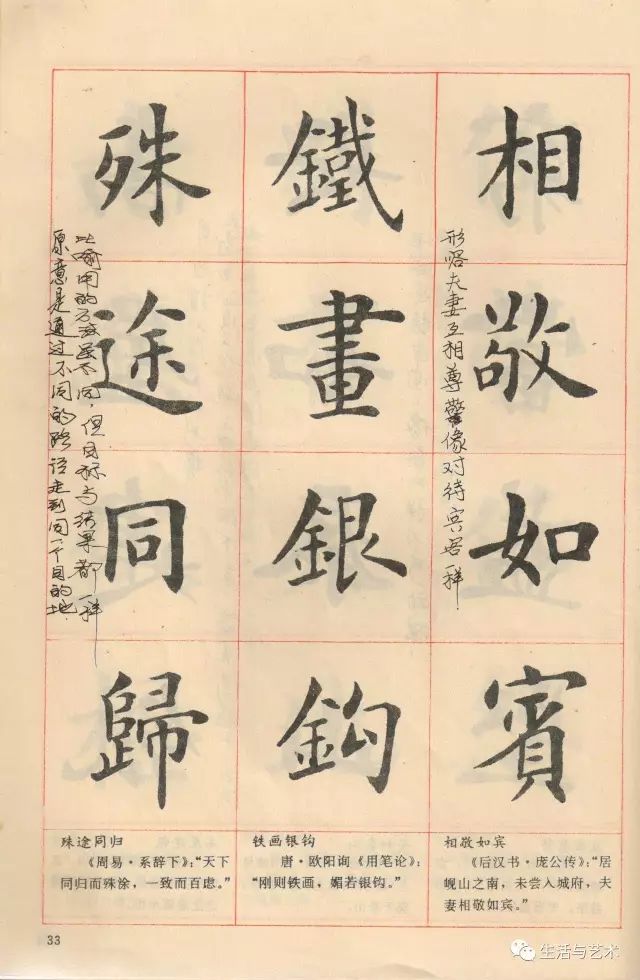 相敬如賓
形容夫妻互相尊警像对待宾客一样
鐵畫銀鈎
殊途同歸
比喻用的方法虽不同，但目标与结果都一样
原意是通过不同的路径走到同一个目的地
相敬如宾
《后汉书·庞公传》：“居
岘山之南，未尝入城府，夫
妻相敬如宾。”
铁画银钩
唐·欧阳询《用笔论》：
“刚则铁画，媚若银钩。”
殊途同归
《周易·系辞下》：“天下
同归而殊涂，一致而百虑。”
33
生活与艺术